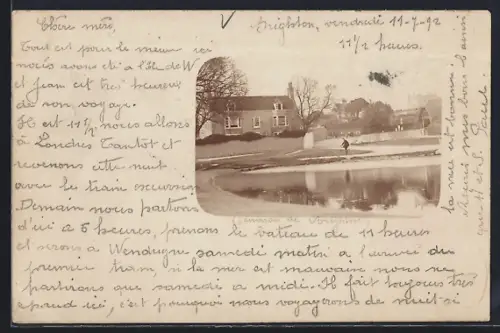 Brighton, vendredi 11-7-92
11 1/2 heures.
Chère mère,
Tout est pour le mieux ici
nous avons été à l'Ile de W
et Jean est très heureux
de son voyage.
Il est 11 1/2 nous allons
à Londres Tantot et
revenons cette nuit
avec le train excursion
Demain nous partons
d'ici à 5 heures, prenons le bateau de 11 heures
et serons à Wenduyne samedi matin à l'arrivé du
premier tram, si la mer est mauvaise nous ne
partirons que samedi a midi. Il fait toujours très
chaud ici, c'est pourquoi nous voyagerons de nuit si
la mer est bonne.